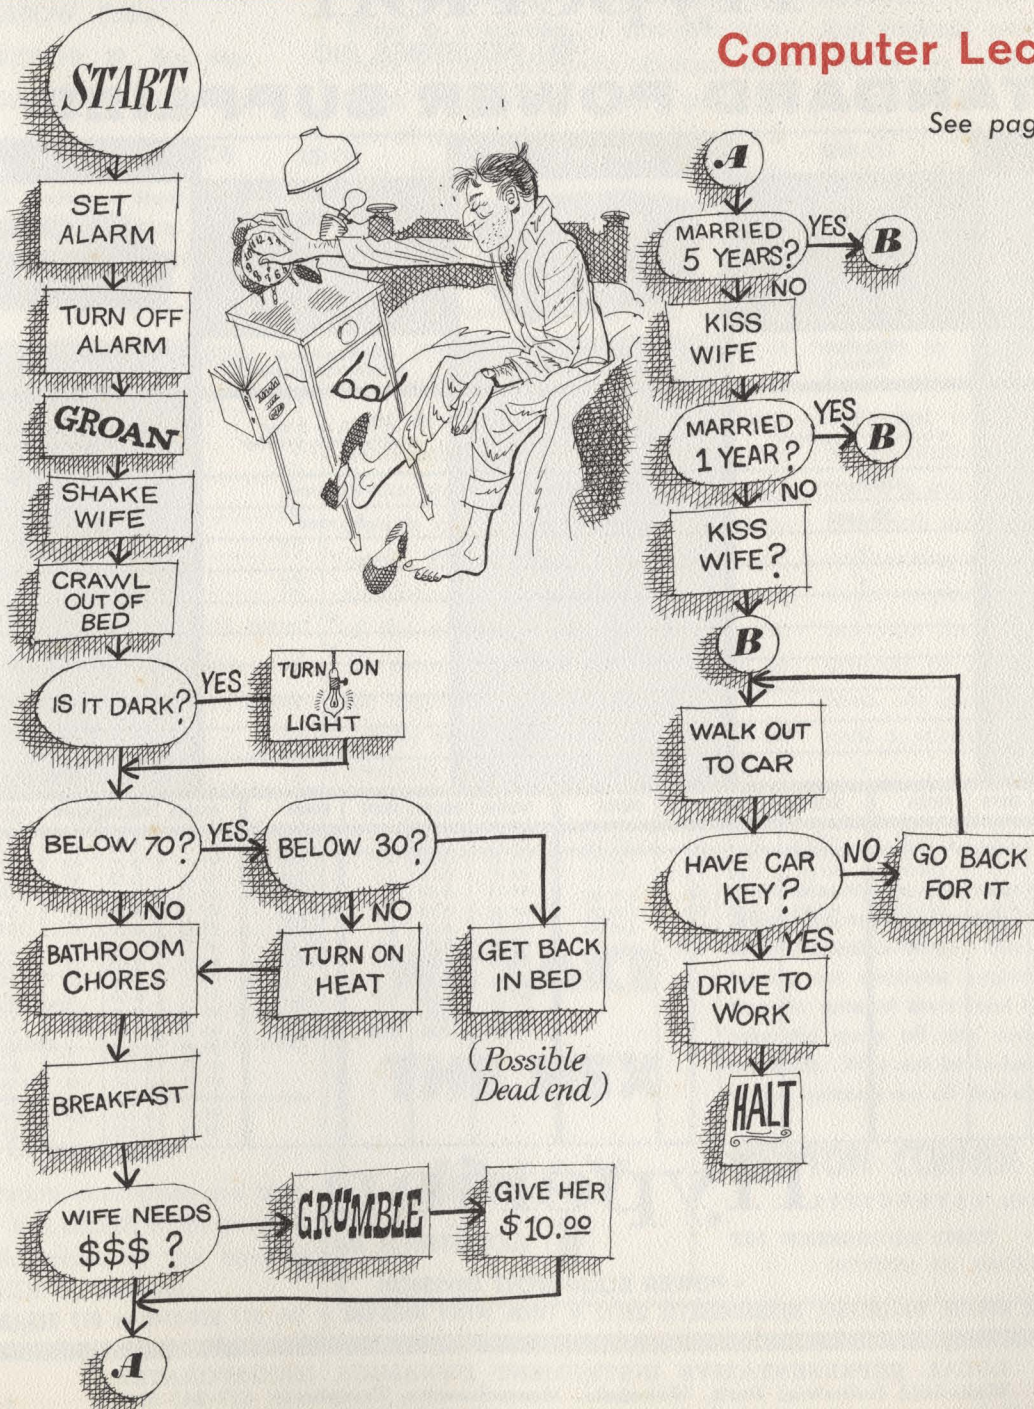 Computer Lec
See pag
START
SET
ALARM
TURN OFF
ALARM
GROAN
SHAKE
WIFE
CRAWL
OUT OF
BED
IS IT DARK?
YES
TURN ON
LIGHT
BELOW 70?
YES
BELOW 30?
NO
NO
BATHROOM
CHORES
TURN ON
HEAT
GET BACK
IN BED
(Possible
Dead end)
BREAKFAST
WIFE NEEDS
$$$ ?
GRUMBLE
GIVE HER
$10.00
A
A
MARRIED
5 YEARS?
YES
B
NO
KISS
WIFE
MARRIED
1 YEAR?
YES
B
NO
KISS
WIFE?
B
WALK OUT
TO CAR
HAVE CAR
KEY?
NO
GO BACK
FOR IT
YES
DRIVE TO
WORK
HALT